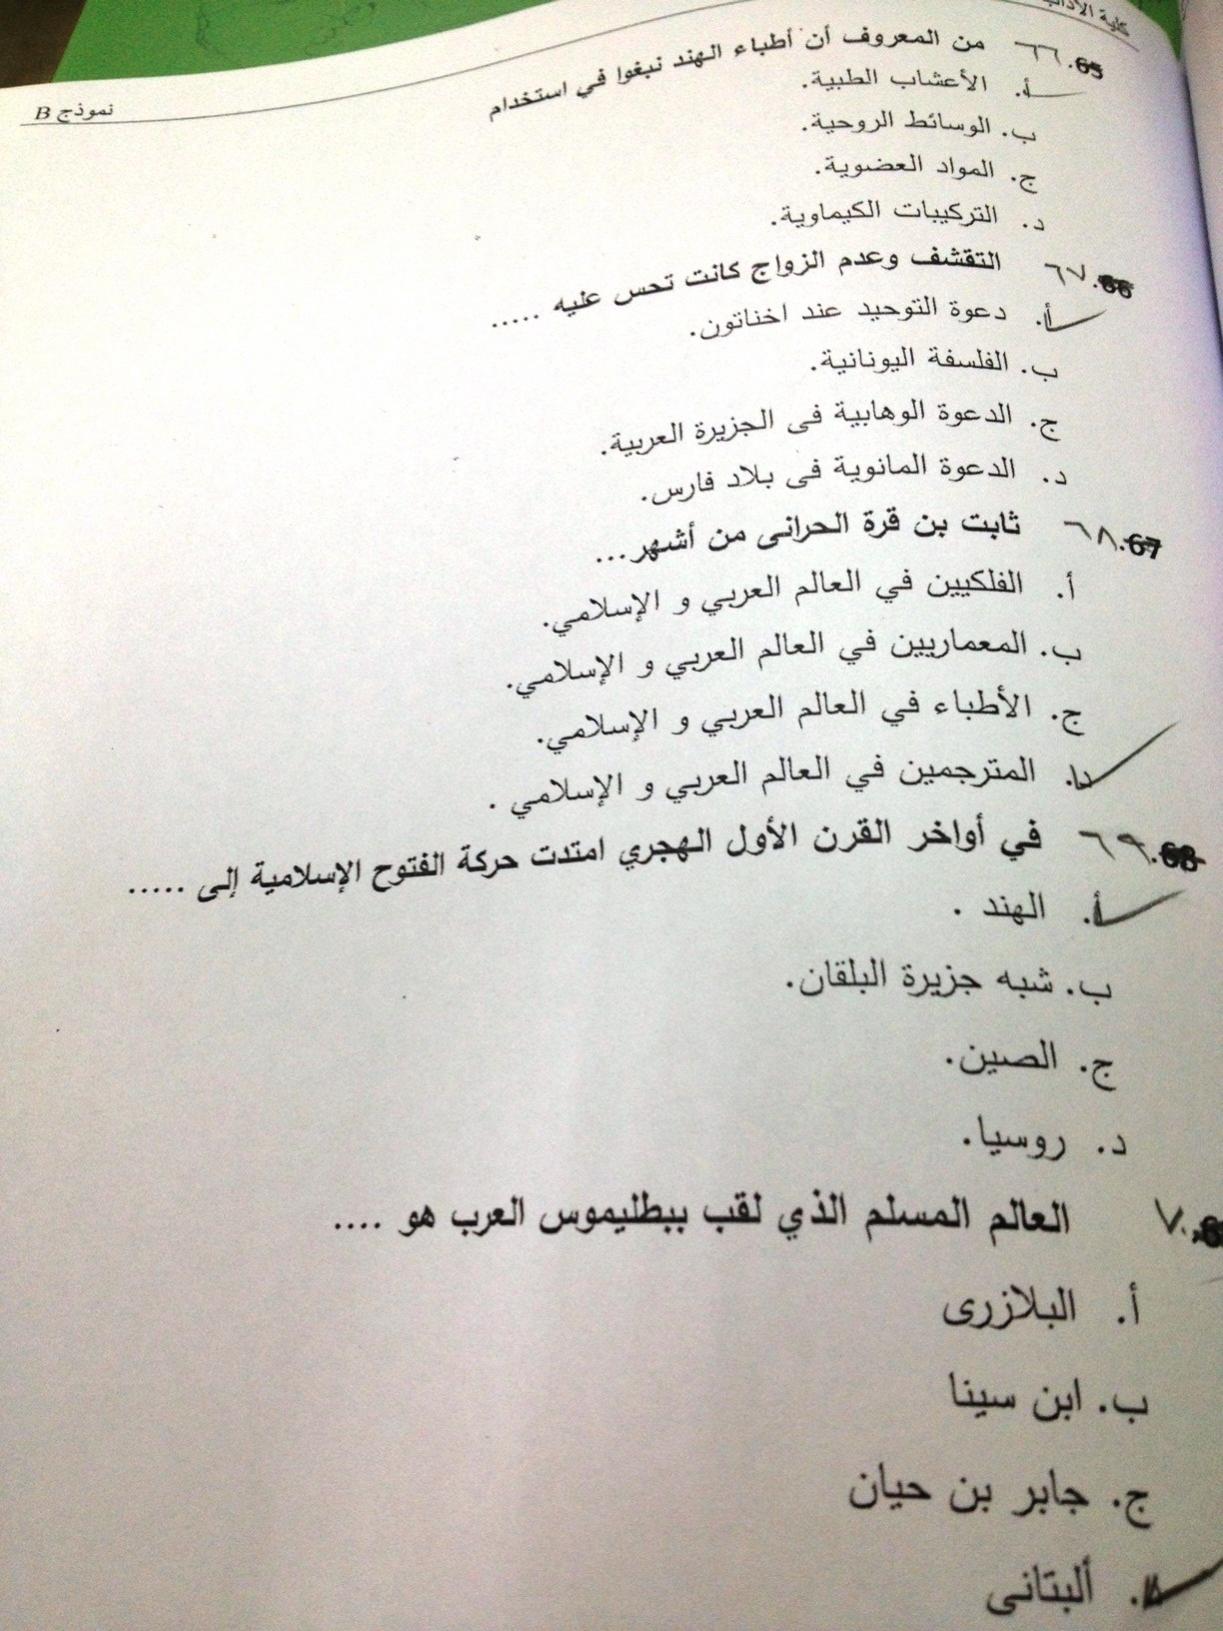 كلية الآداب
نموذج B
65. ٦٦ من المعروف أن أطباء الهند نبغوا في استخدام
أ. الأعشاب الطبية.
ب. الوسائط الروحية.
ج. المواد العضوية.
د. التركيبات الكيماوية.
66. ٦٧ التقشف وعدم الزواج كانت تحس عليه .....
أ. دعوة التوحيد عند اخناتون.
ب. الفلسفة اليونانية.
ج. الدعوة الوهابية فى الجزيرة العربية.
د. الدعوة المانوية فى بلاد فارس.
67. ٦٨ ثابت بن قرة الحرانى من أشهر...
أ. الفلكيين في العالم العربي و الإسلامي.
ب. المعماريين في العالم العربي و الإسلامي.
ج. الأطباء في العالم العربي و الإسلامي.
د. المترجمين في العالم العربي و الإسلامي .
68. ٦٩ في أواخر القرن الأول الهجري امتدت حركة الفتوح الإسلامية إلى .....
أ. الهند .
ب. شبه جزيرة البلقان.
ج. الصين.
د. روسيا.
٧٠ العالم المسلم الذي لقب ببطليموس العرب هو ....
أ. البلازرى
ب. ابن سينا
ج. جابر بن حيان
د. ألبتانى